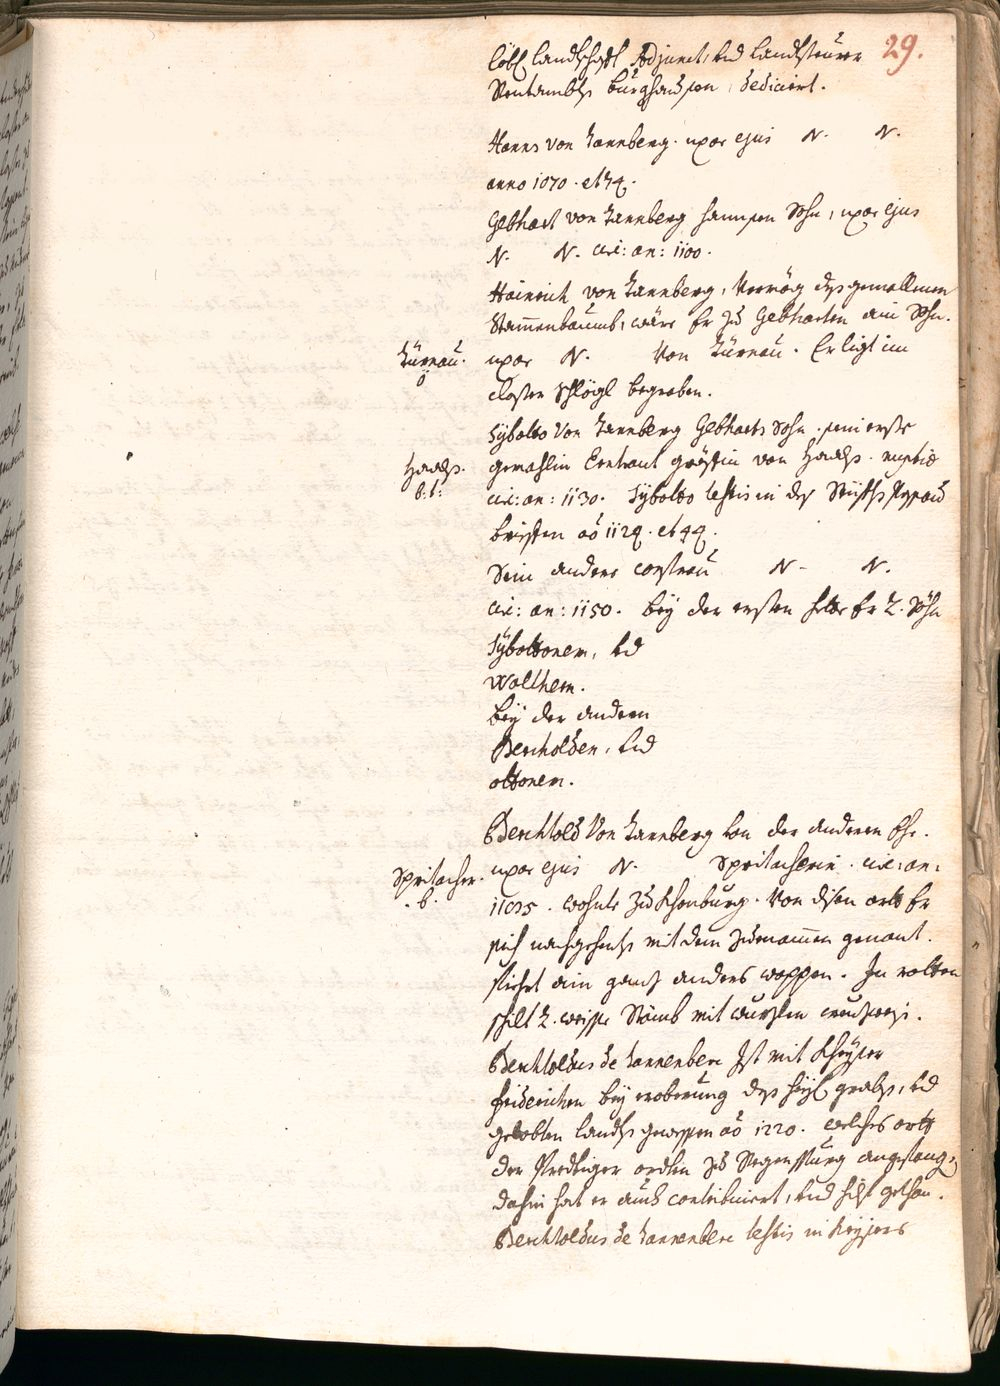 29.
löbl. Landschafft Adjunct, und Landsteurer
Rentambts Burghausen, dediciert.
Hanns von Tannberg. uxor ejus N. N.
anno 1070. et 74.
Gebhart von Tannberg Hannsen Sohn, uxor ejus
N. N. circ: an: 1100.
Hainrich von Tannberg, Vermög dess gemallnen
Stammenbaumbs, wäre Er zu Gebharten ain Sohn.
Türnau. uxor N. Von Türnau. Er ligt im
Closter Schlögl begraben.
Syboldo Von Tannberg Gebharts Sohn. seini erste
Haals. gemahlin Erntraut gräffin von Haals. nuptiae
circ: an: 1130. Syboldo testis in des Stiffts Passau
brieffen aõ 112. et 44.
Sein andere Confrau N. N.
circ: an: 1150. bey der ersten hette Er 2. Söhn
Sybottonem, und
Walthern.
bey der andern
Bercholden, und
ottonem.
Berchtold Von Tannberg von der anderen Ehe.
Spritacher. uxor ejus N. Spritacherin. circ: an:
wohnte zu Schonburg. Von disen orth Er
sich nachgehents mit dem Zuenammen genant.
fiehrt ain gantz anders wappen. In rotten
schilt 2. weisse Stämb mit wurzlen creuzweis.
Berchtoldus de Tannenberc Ist mit Kheyser
Friderichen bey eroberung dess heyl. grabs, und
gelobten Landts gewessen aõ 1220. welches orth
der Prediger orden zu Regenspurg angefang.
dahin hat er auch contribuiert, und hilf gethan.
Berchtoldus de Tannenberc testis in Keysers